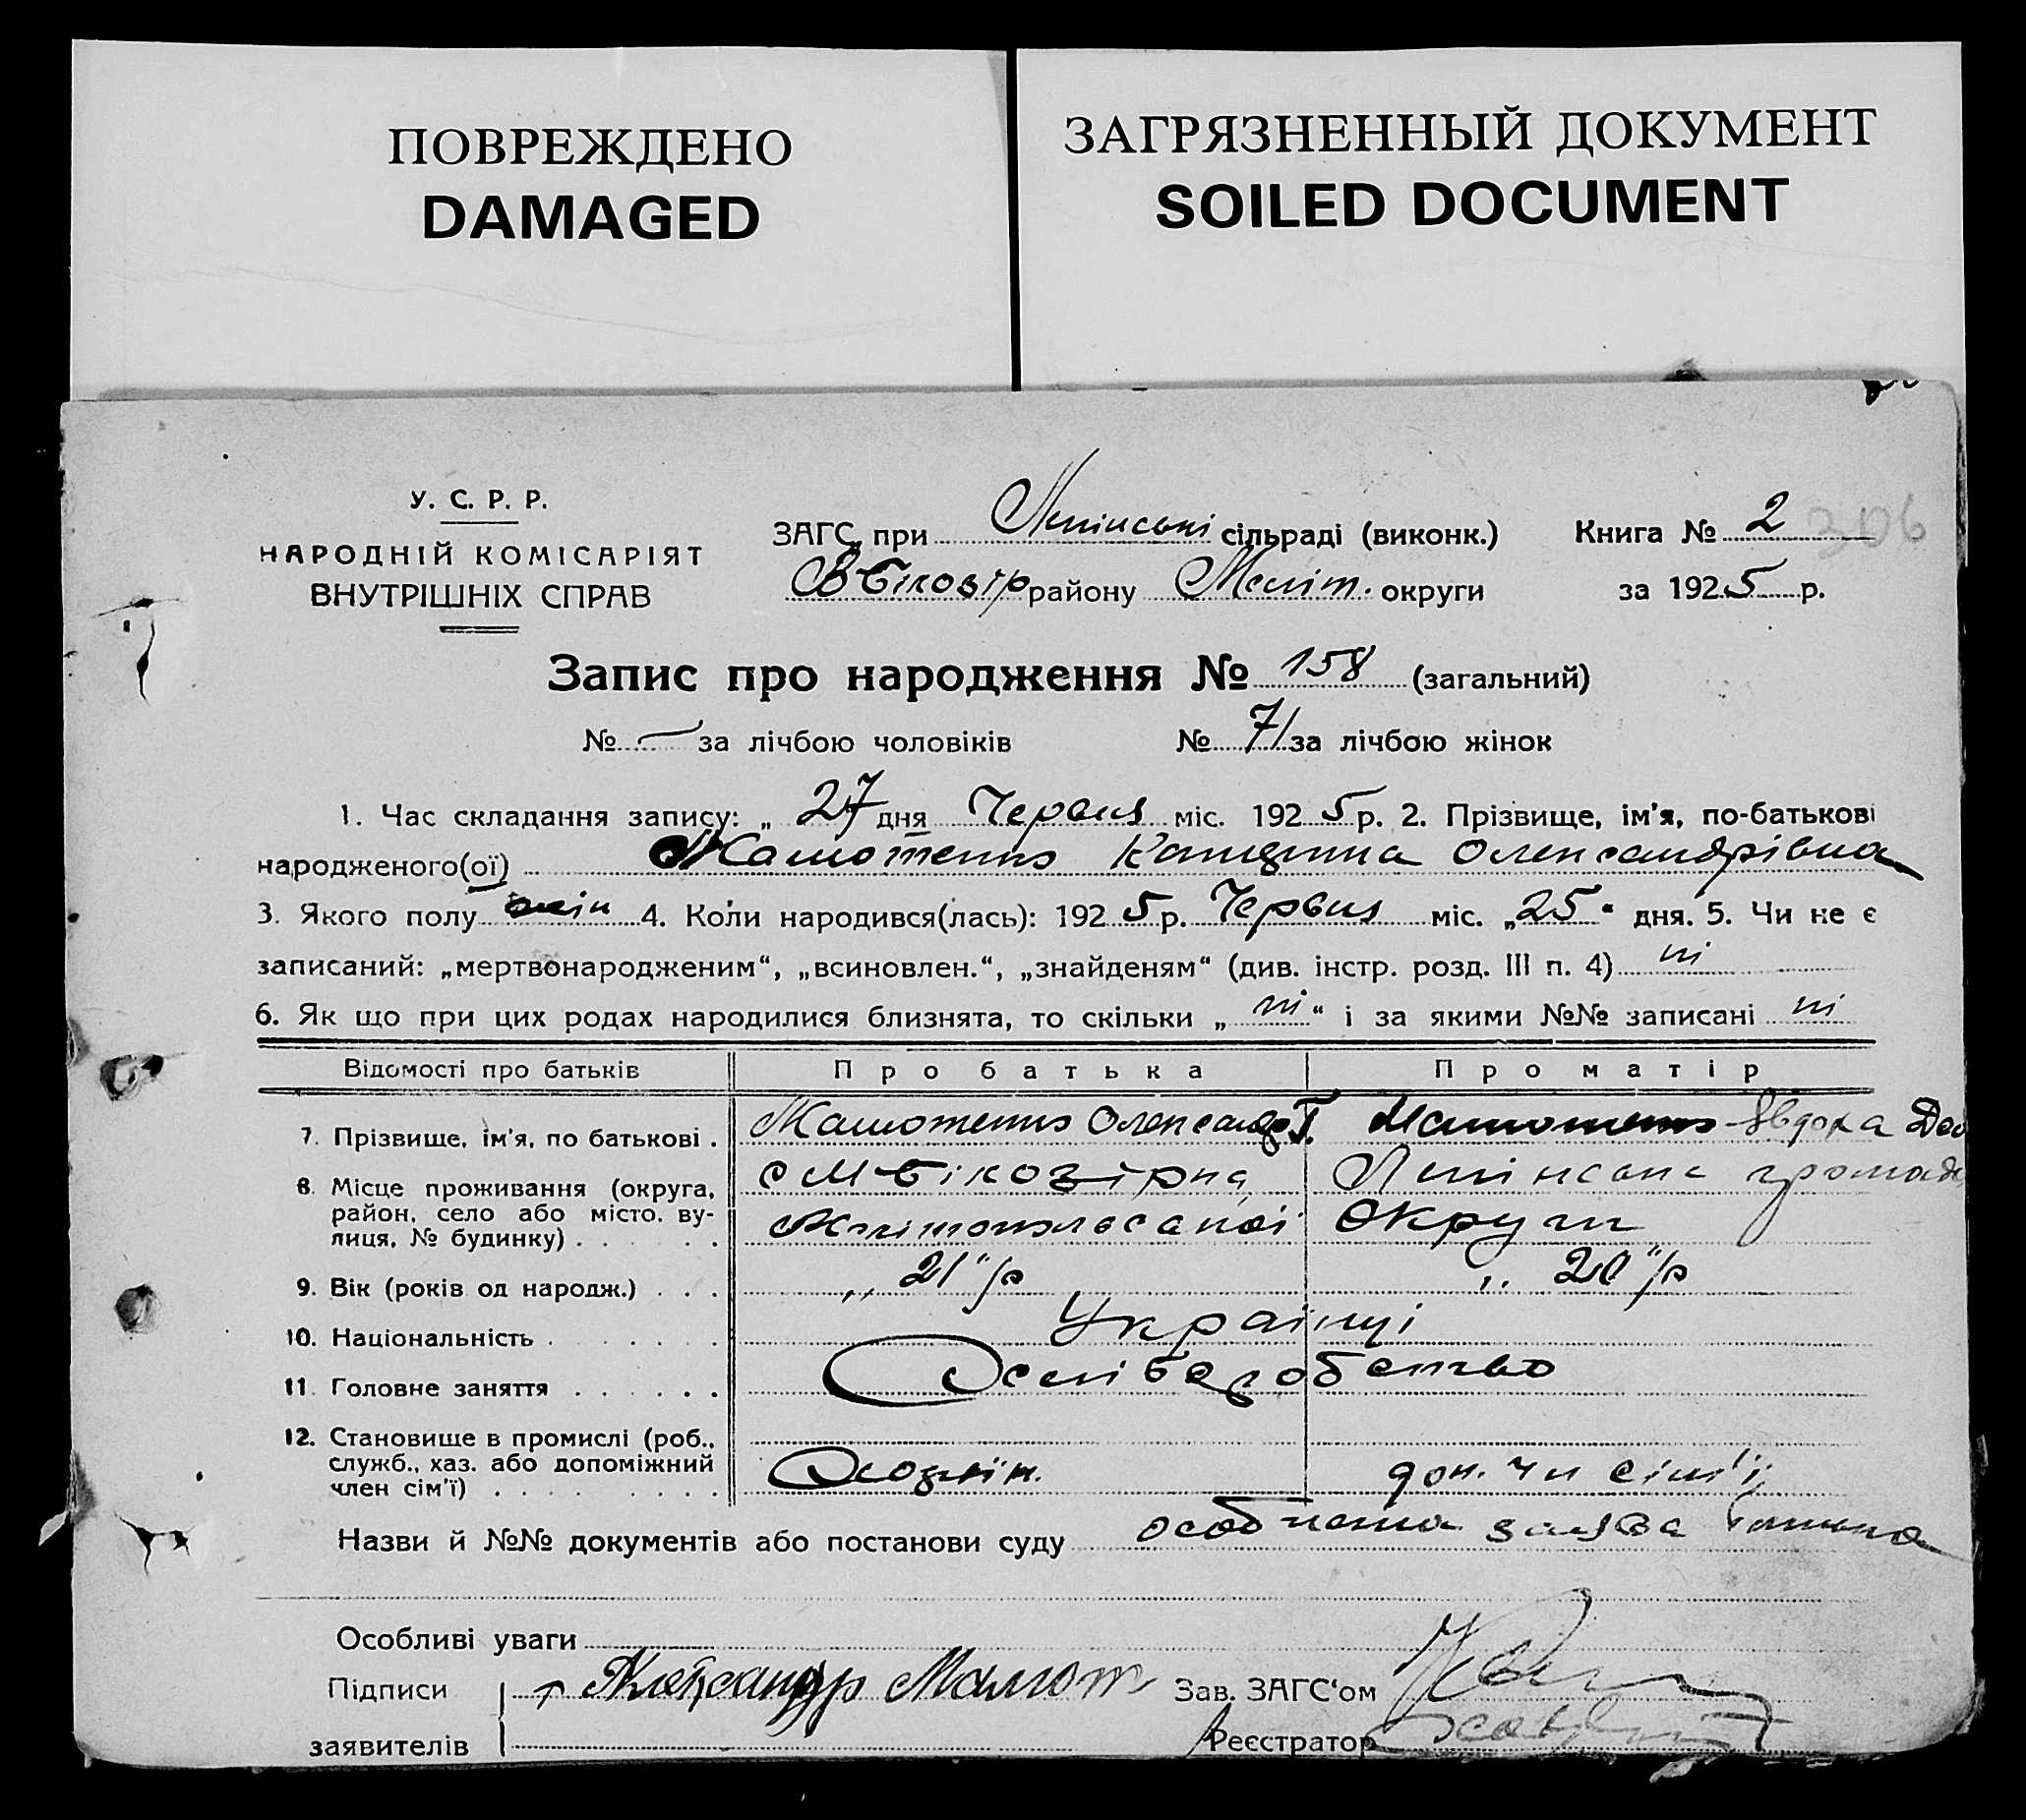 ПОВРЕЖДЕНО
DAMAGED
ЗАГРЯЗНЕННЫЙ ДОКУМЕНТ
SOILED DOCUMENT
У. С. Р. Р.
НАРОДНІЙ КОМІСАРІЯТ
ВНУТРІШНІХ СПРАВ
ЗАГС при Ленінські сільраді (виконк.)
В Білозір району Меліт. округи
Книга № 2 306
за 1925 р.
Запис про народження № 158 (загальний)
№ — за лічбою чоловіків № 71 за лічбою жінок
1. Час складання запису: „ 27 дня Червня міс. 1925 р. 2. Прізвище, ім'я, по-батькові
народженого(ої) Олександрівна
3. Якого полу жін 4. Коли народився(лась): 1925 р. Червня міс. „25“ дня. 5. Чи не є
записаний: „мертвонародженим“, „всиновлен.“, „знайденям“ (див. інстр. розд. III п. 4) ні
6. Як що при цих родах народилися близнята, то скільки „ ні “ і за якими №№ записані ні
Відомості про батьків Про батька Про матір
7. Прізвище, ім'я, по батькові . Олександр Т. Явдоха
8. Місце проживання (округа,
район, село або місто, ву-
лиця, № будинку) . . . . . .
с М Білозірка Ленінська громада
Мелітопольської Округи
9. Вік (років од народж.) . . . „ 21"/р „ 20"/р
10. Національність . . . . . . Українці
11. Головне заняття . . . . . .
12. Становище в промислі (роб.,
служб., хаз. або допоміжний
член сім'ї) . . . . . . . . .
доп. чл сім'ї
Назви й №№ документів або постанови суду особиста заява батька
Особливі уваги
Підписи Александр Зав. ЗАГС'ом
заявителів Реєстратор